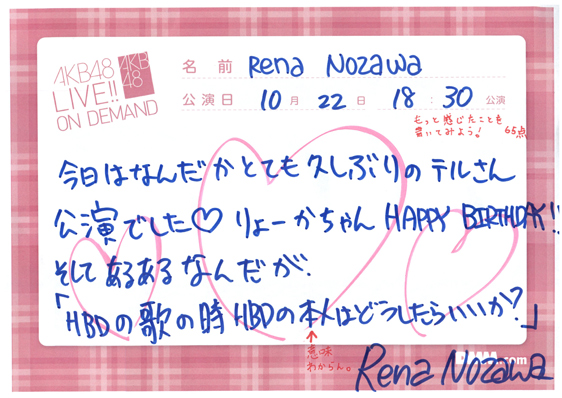 AKB48
LIVE!!
ON DEMAND
AKB
48
名前 Rena Nozawa
公演日 10月 22日 18:30 公演
もっと感じたことを
書いてみよう! 65点
今日はなんだかとても久しぶりのテルさん
公演でした♡ りょーかちゃん HAPPY BIRTHDAY!!
そしてあるあるなんだが、
「HBDの歌の時HBDの本人はどうしたらいいか?」
↑
意味
わからん。
.com
Rena Nozawa